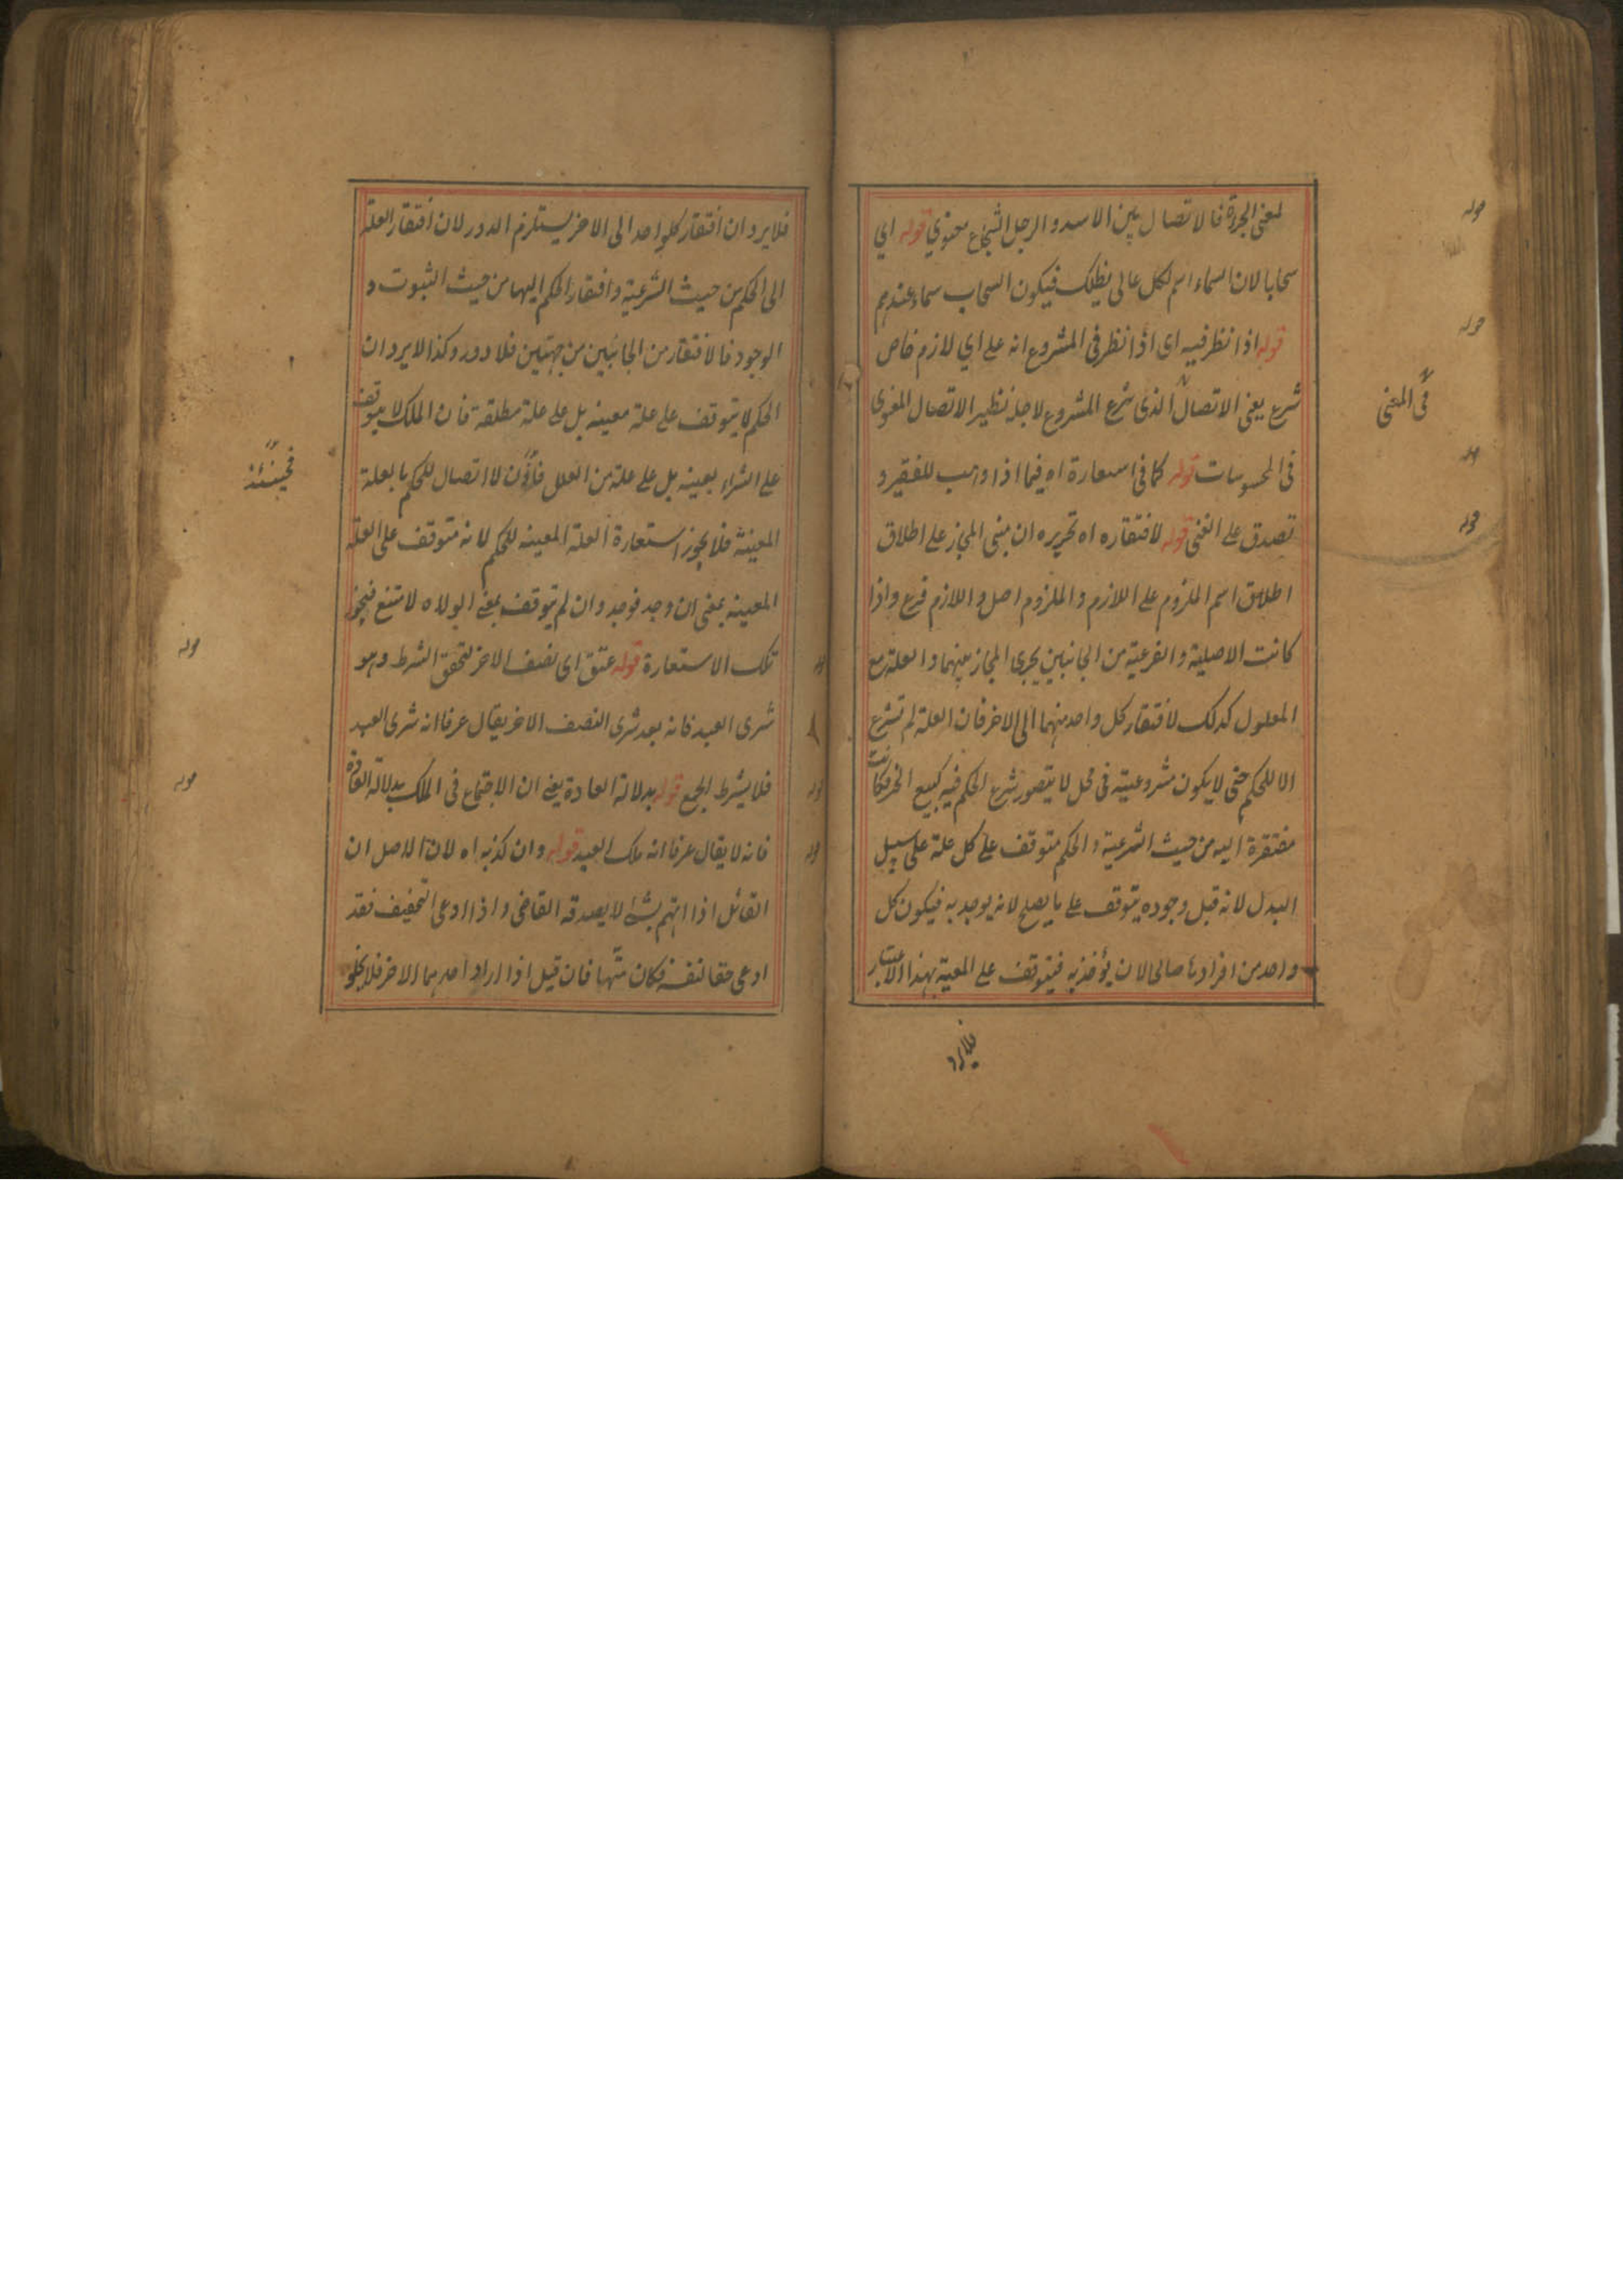 لمعنى الجرءة فالاتصال بين الاسد والرجل الشجاع معنوي قوله اي
سحابا لان السماء اسم لكل عالى يظلك فيكون السحاب سماء عندهم
قوله اذا نظر فيه اى اذا نظر فى المشروع انه على اي لازم خاص
شرع يعنى الاتصال الذى شرع المشروع لاجله نظير الاتصال المعنوى
فى المعنى
فى المحسوسات قوله كما فى استعارة اه فيما اذا وهب للفقير و
تصدق على الغنى قوله لافتقاره اه تحريره ان مبنى المجاز على اطلاق
اطلاق اسم الملزوم على اللازم والملزوم اصل واللازم فرع واذا
كانت الاصلية والفرعية من الجانبين يجرى المجاز بينهما والعلة مع
المعلول كذلك لافتقار كل واحد منهما الى الاخر فان العلة لم تشرع
الا للحكم حتى لا يكون مشروعيته فى محل لا يتصور شرع الحكم فيه كبيع الحر فكانت
مفتقرة اليه من حيث الشرعية والحكم متوقف على كل علة على سبيل
البدل لانه قبل وجوده يتوقف على ما يصلح لانه يوجد به فيكون كل
واحد من افرادها صالحا لان يؤخذ به فيتوقف على المعية بهذا الاعتبار
فلا يرد
فلا يرد ان افتقار كلواحد الى الاخر يستلزم الدور لان افتقار العلة
الى الحكم من حيث الشرعية وافتقار الحكم اليها من حيث الثبوت و
الوجود فالافتقار من الجانبين من جهتين فلا دور وكذا لا يرد ان
الحكم لا يتوقف على علة معينه بل على علة مطلقة فان الملك لا يتوقف
على الشراء بعينه بل على علة من العلل فاذن لا اتصال للحكم بالعلة
فحينئذ
المعينة فلا يجوز استعارة العلة المعينه للحكم لانه متوقف على العلة
المعينه بمعنى ان وجد فوجد وان لم يتوقف بمعنى لولاه لامتنع فيجوز
تلك الاستعارة قوله عتق اى نصف الاخر لتحقق الشرط وهو
شرى العبد فانه بعد شرى النصف الاخر يقال عرفا انه شرى العبد
فلا يشرط الجمع قوله بدلالة العادة يعنى ان الاجتماع فى الملك بدلالة العادة
فانه لا يقال عرفا انه ملك العبد قوله وان كذبه اه لان الاصل ان
القائل اذا اتهم بشئ لا يصدقه القاضى واذا ادعى التخفيف فقد
ادعى حقا لنفسه فكان متهما فان قيل اذا اراد احدهما الاخر فلا يخلو